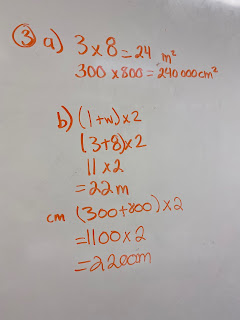 ③ a) 3 x 8 = 24 m²
300 x 800 = 240 000 cm²
b) (l+w)x2
(3+8)x2
11 x2
= 22 m
cm (300+800)x2
=1100x2
=2200cm